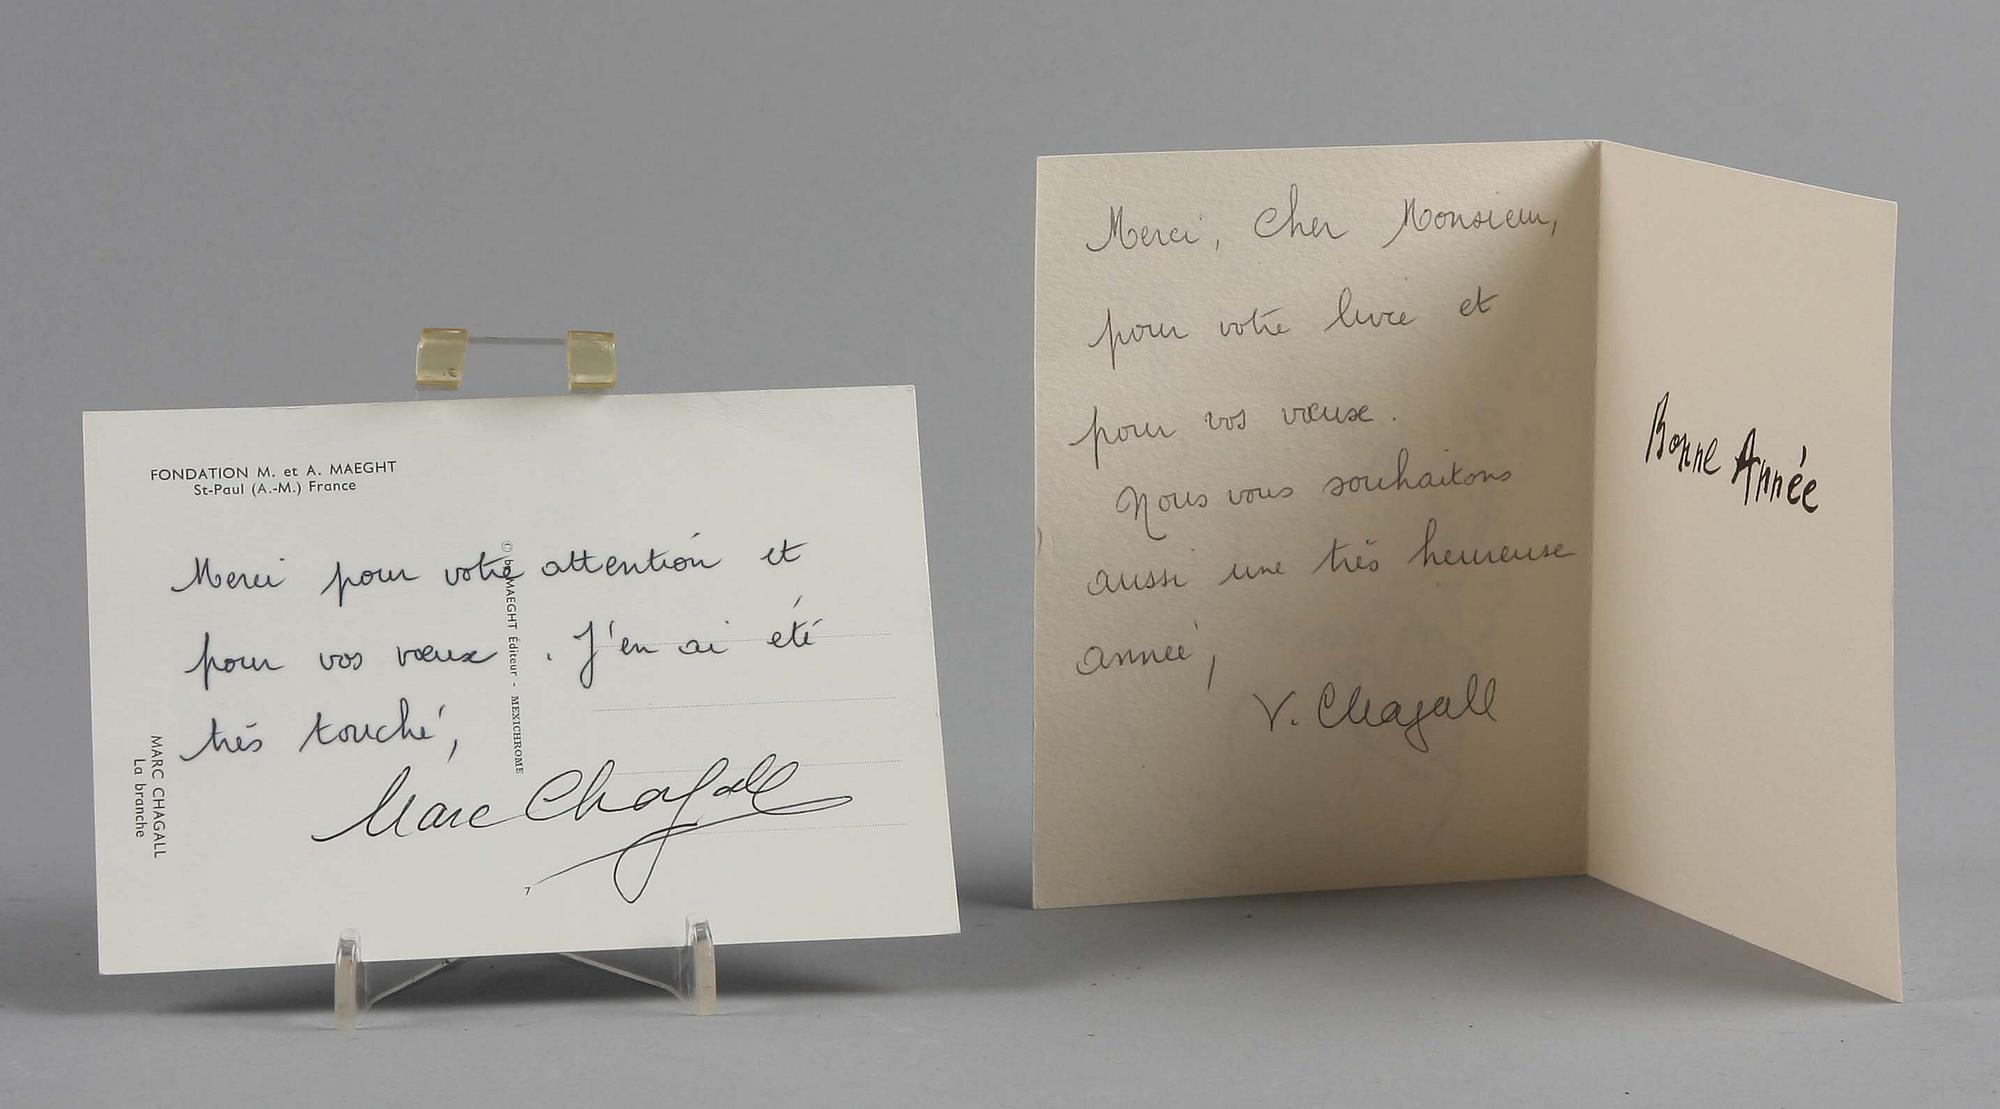 FONDATION M. et A. MAEGHT
St-Paul (A.-M.) France
Merci pour votre attention et
pour vos vœux. J'en ai été
très touché,
Marc Chagall
© by MAEGHT Éditeur - MEXICHROME
MARC CHAGALL
La branche
7
Merci, Cher Monsieur,
pour votre livre et
pour vos vœux.
Nous vous souhaitons
aussi une très heureuse
année,
V. Chagall
Bonne Année